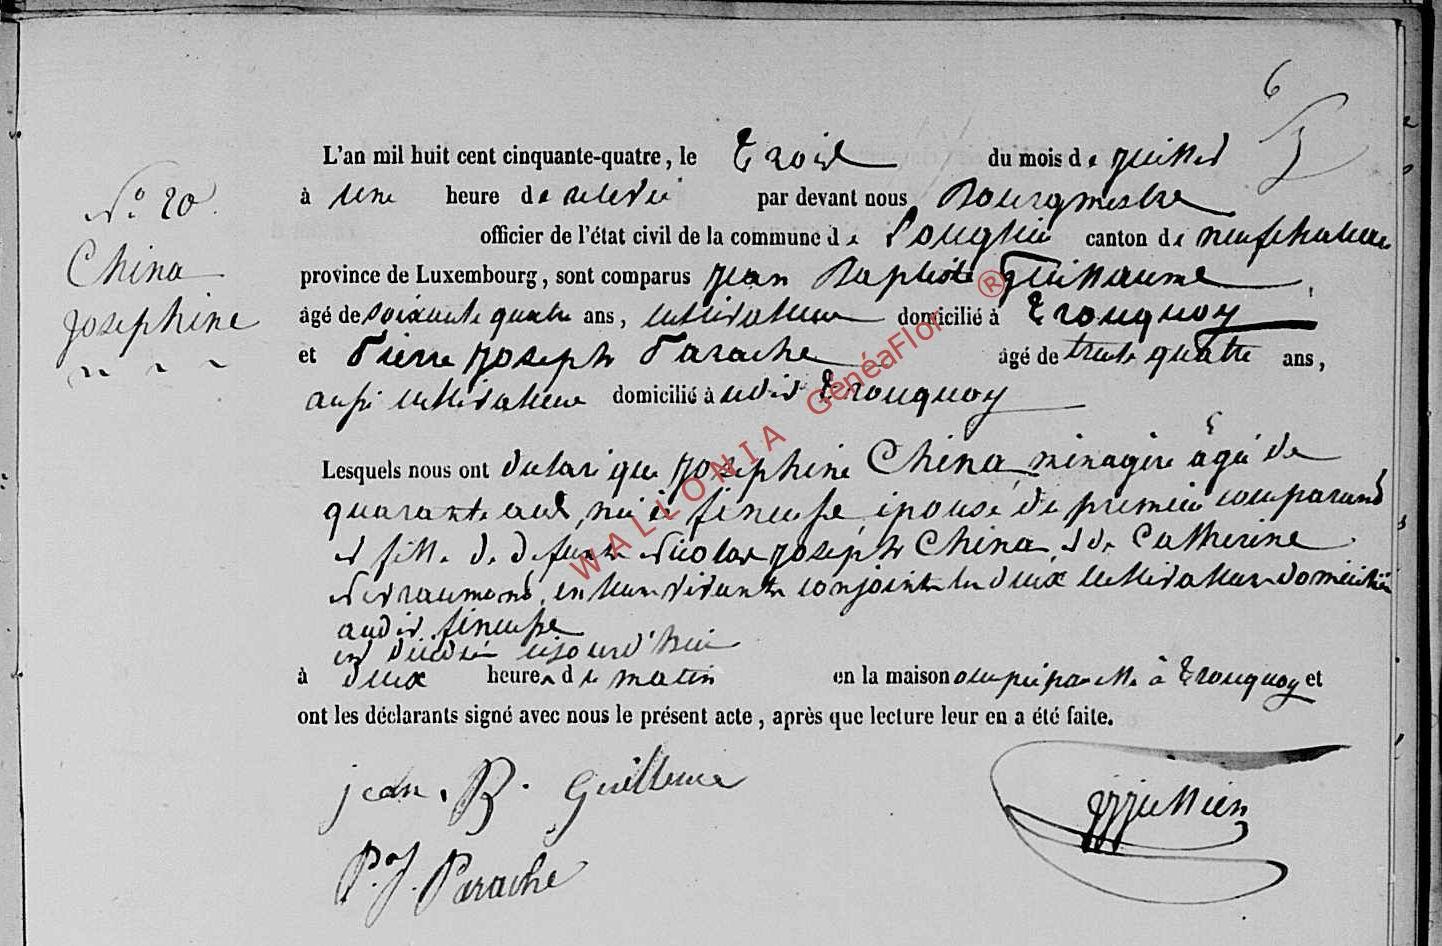 6
L'an mil huit cent cinquante-quatre, le Trois du mois de juillet
N° 20.
à une heure de relevée par devant nous Bourgmestre
China
officier de l'état civil de la commune de canton de neufchateau
Josephine
province de Luxembourg, sont comparus Jean Baptiste Guillaume
âgé de soixante quatre ans, cultivateur domicilié à Tronquoy
et Pierre Joseph Parache âgé de trente quatre ans,
aussi cultivateur domicilié à udit Tronquoy
Lesquels nous ont déclaré que Josephine China, ménagère âgée de
quarante ans, née à fineuse, épouse de premier comparant
et fille de defunts Nicolas Joseph China, et de Catherine
en leur vivant conjoints les deux cultivateurs domiciliés
audit fineuse
est décédée cejourd'hui
à deux heures de matin en la maison occupée par elle à Tronquoy et
ont les déclarants signé avec nous le présent acte, après que lecture leur en a été faite.
jean. B. Guilleume
P. J. Parache
WALLONIA GenéaFlor ®